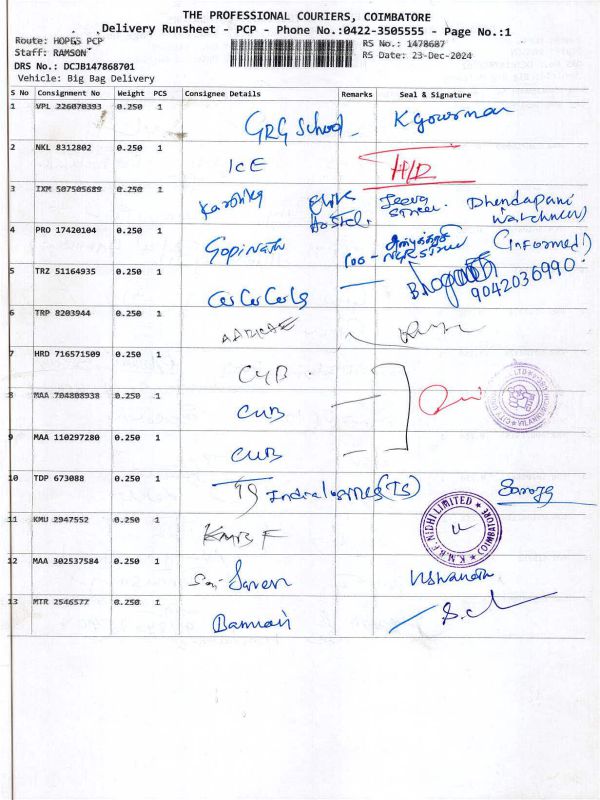 THE PROFESSIONAL COURIERS, COIMBATORE
Delivery Runsheet - PCP - Phone No.:0422-3505555 - Page No.:1
Route: HOPES PCP
RS No.: 1478687
Staff: RAMSON
RS Date: 23-Dec-2024
DRS No.: DCJB147868701
Vehicle: Big Bag Delivery
S No Consignment No Weight PCS Consignee Details Remarks Seal & Signature
1 VPL 226070393 0.250 1 GRG School
2 NKL 8312802 0.250 1 ICE H/R
3 IXM 507505689 0.250 1 Hostel. Street. Dhendapani
4 PRO 17420104 0.250 1 Gopinath (informed)
5 TRZ 51164935 0.250 1 9042036990
6 TRP 8203944 0.250 1
7 HRD 716571509 0.250 1 CUB
8 MAA 704808938 0.250 1 CUB
9 MAA 110297280 0.250 1 CUB
10 TDP 673088 0.250 1 Saroja
11 KMU 2947552 0.250 1 NIDHI LIMITED COIMBATORE
12 MAA 302537584 0.250 1
13 MTR 2546577 0.250 1 Bannari